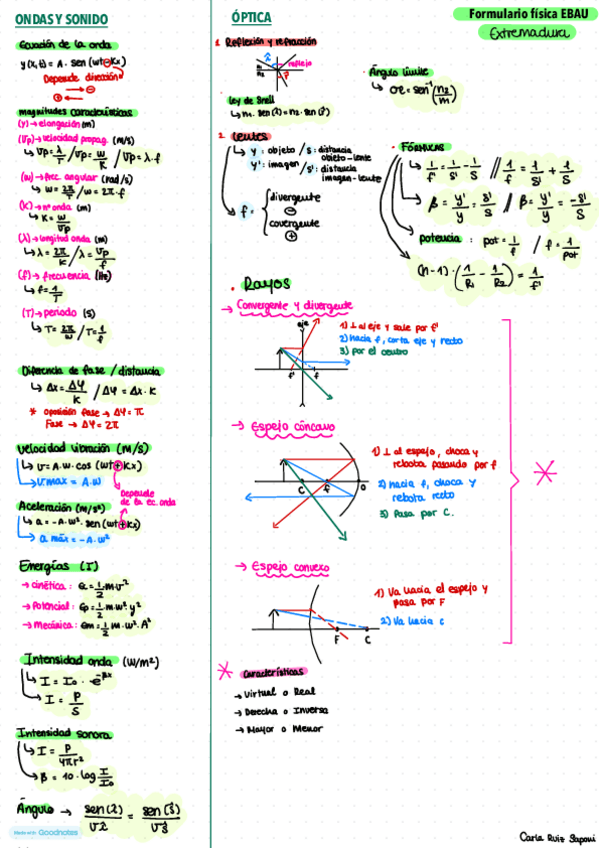 ONDAS Y SONIDO
Ecuación de la onda
y(x,t) = A · sen (wt⊖Kx)
Depende dirección
→ ⊖
⊕ ←
magnitudes características
(y) → elongación (m)
(Vp) → velocidad propag. (m/s)
↳ Vp = λ/T / Vp = w/K / Vp = λ·f
(w) → frec. angular (rad/s)
↳ w = 2π/T / w = 2π·f
(K) → nº onda (m)
↳ K = w/Vp
(λ) → longitud onda (m)
↳ λ = 2π/K / λ = Vp/f
(f) → frecuencia (Hz)
↳ f = 1/T
(T) → periodo (s)
↳ T = 2π/w / T = 1/f
Diferencia de fase / distancia
↳ Δx = Δφ/K / Δφ = Δx·K
* oposición fase → Δφ = π
Fase → Δφ = 2π
Velocidad vibración (m/s)
↳ v = A·w·cos (wt⊕Kx)
↳ v max = A·w
Depende
de la ec. onda
Aceleración (m/s²)
↳ a = -A·w²·sen(wt⊕Kx)
↳ a máx = -A·w²
Energías (J)
→ cinética: Ec = 1/2·m·v²
→ Potencial: Ep = 1/2·m·w²·y²
→ Mecánica: Em = 1/2·m·w²·A²
Intensidad onda (W/m²)
↳ I = I₀ · e^-βx
↳ I = P/S
Intensidad sonora
↳ I = P/4πr²
↳ β = 10·log I/I₀
Ángulo → sen(î)/vî = sen(r̂)/vr̂
Made with Goodnotes
ÓPTICA
1. Reflexión y refracción
n₁
n₂
î
reflejo
r̂
· Ley de Snell
↳ n₁·sen(î) = n₂·sen(r̂)
2. Lentes
↳ y: objeto / s: distancia objeto-lente
y': imagen / s': distancia imagen-lente
↳ f = { divergente ⊖
covergente ⊕
Formulario física EBAU
Extremadura
· Ángulo límite
↳ σc = sen⁻¹(n₂/n₁)
· FÓRMULAS
↳ 1/f' = 1/s' - 1/s // 1/f = 1/s' + 1/s
↳ β = y'/y = s'/s // β = y'/y = -s'/s
potencia: pot = 1/f / f = 1/pot
(n-1)·(1/R₁ - 1/R₂) = 1/f'
· Rayos
→ Convergente y divergente
eje
f'
f
1) ⊥ al eje y sale por f'
2) hacia f, corta eje y recto
3) por el centro
→ Espejo cóncavo
C
f
O
1) ⊥ al espejo, choca y
rebota pasando por f
2) hacia f, choca y
rebota recto
3) Pasa por C.
*
→ Espejo convexo
F
C
1) Va hacia el espejo y
pasa por F
2) Va hacia c
* Características
→ Virtual o Real
→ Derecha o Inversa
→ Mayor o Menor
Carla Ruiz Saponi